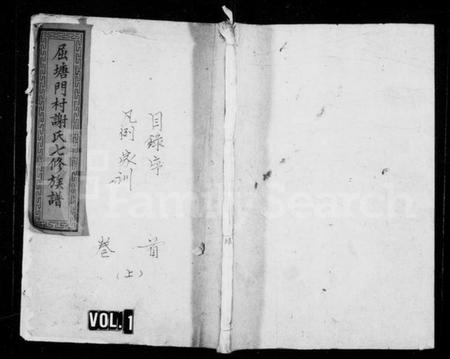 屈塘門村謝氏七修族譜
目錄序
凡例家訓
卷首
(上)
VOL. 1
FamilySearch